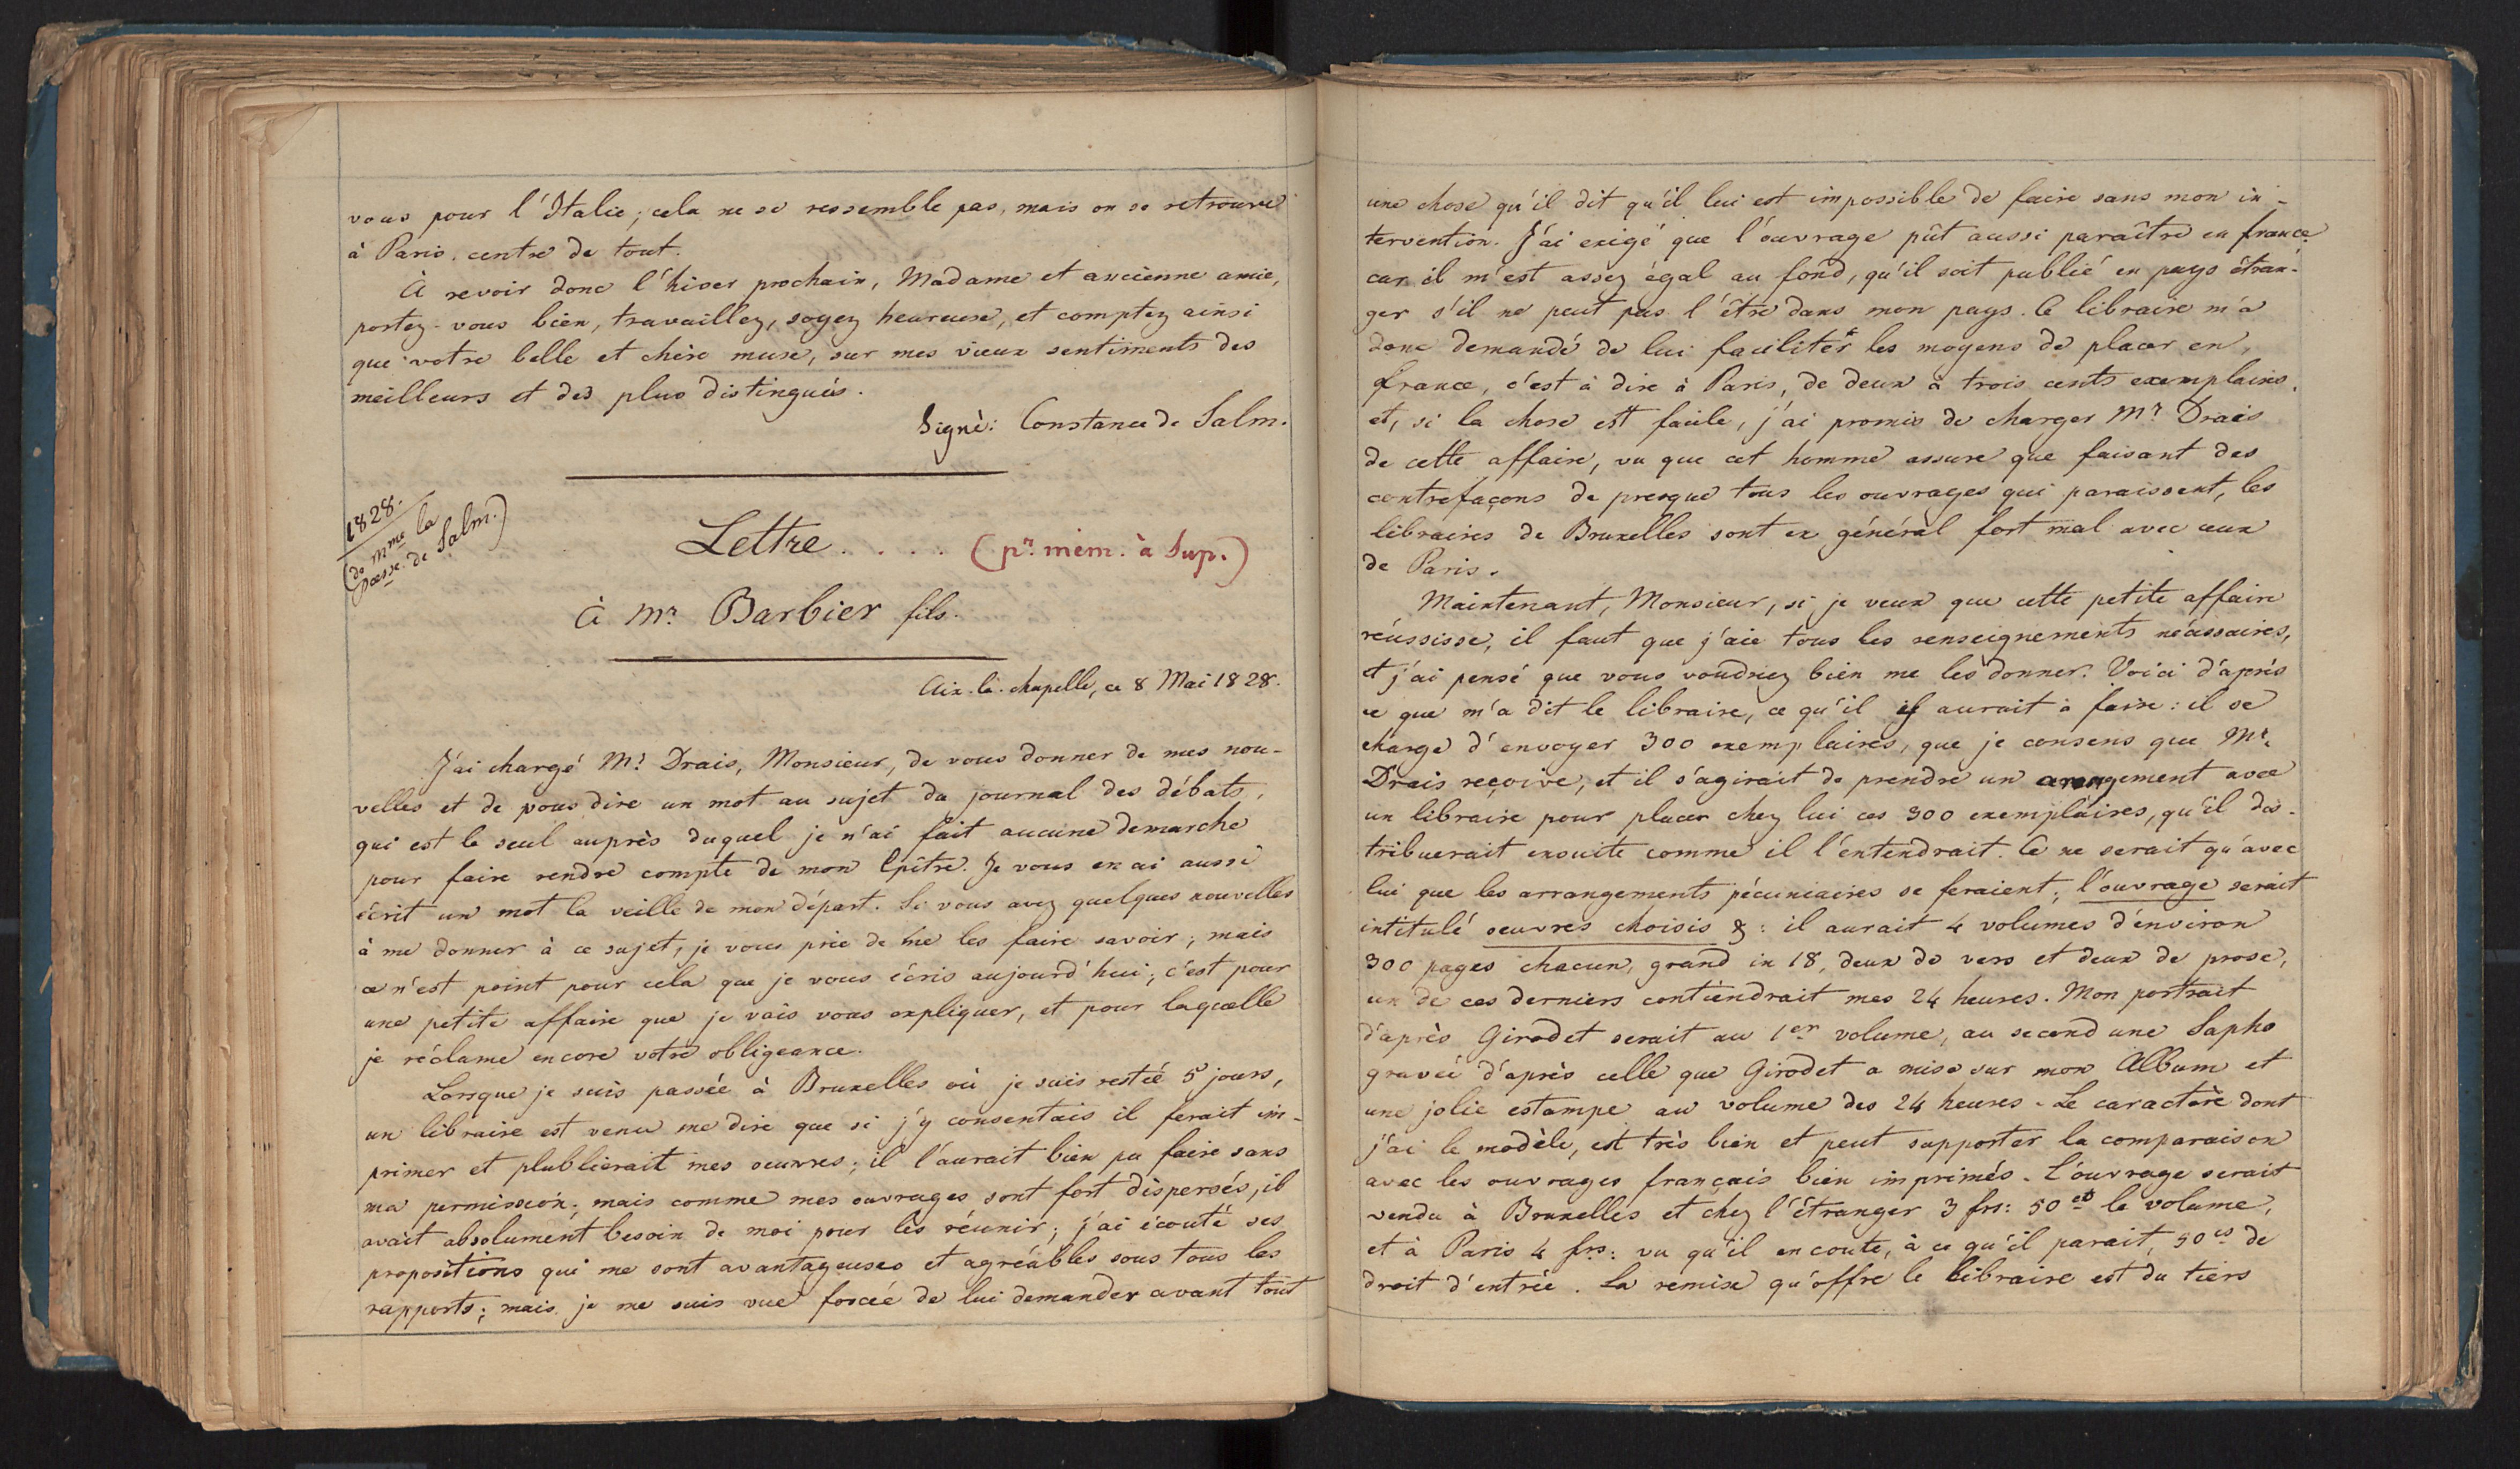 vous pour l'Italie; cela ne se ressemble pas, mais on se retrouve
à Paris, centre de tout.
À revoir donc l'hiver prochain, Madame et ancienne amie,
portez-vous bien, travaillez, soyez heureuse, et comptez ainsi
que votre belle et chère muse, sur mes vieux sentiments des
meilleurs et des plus distingués.
Signé: Constance de Salm.
1828.
(de Mme la
Pcesse. de Salm.)
Lettre.... (pr. mém. à Sup.)
À Mr. Barbier fils.
Aix-la-chapelle, ce 8 Mai 1828.
J'ai chargé Mr. Drais, Monsieur, de vous donner de mes nou-
velles et de vous dire un mot au sujet du journal des débats,
qui est le seul auprès duquel je n'ai fait aucune demarche
pour faire rendre compte de mon Epître. Je vous en ai aussi
écrit un mot la veille de mon départ. Si vous avez quelques nouvelles
à me donner à ce sujet, je vous prie de me les faire savoir; mais
ce n'est point pour cela que je vous écris aujourd'hui; c'est pour
une petite affaire que je vais vous expliquer, et pour laquelle
je réclame encore votre obligeance.
Lorsque je suis passée à Bruxelles où je suis restée 5 jours,
un libraire est venu me dire que si j'y consentais il ferait im-
primer et plublierait mes oeuvres; il l'aurait bien pu faire sans
ma permission; mais comme mes ouvrages sont fort dispersés, il
avait absolument besoin de moi pour les réunir; j'ai écouté ses
propositions qui me sont avantageuses et agréables sous tous les
rapports; mais je me suis vue forcée de lui demander avant tout
une chose qu'il dit qu'il lui est impossible de faire sans mon in-
tervention. J'ai exigé que l'ouvrage pût aussi paraître en france
car il m'est assez égal au fond, qu'il soit publié en pays étran-
ger s'il ne peut pas l'être dans mon pays. Ce libraire m'a
donc demandé de lui faciliter les moyens de placer en
france, c'est à dire à Paris, de deux à trois cents exemplaires,
et, si la chose est facile, j'ai promis de charger Mr. Drais
de cette affaire, vu que cet homme assure que faisant des
contrefaçons de presque tous les ouvrages qui paraissent, les
libraires de Bruxelles sont en général fort mal avec ceux
de Paris.
Maintenant, Monsieur, si je veux que cette petite affaire
réussisse, il faut que j'aie tous les renseignements nécessaires,
et j'ai pensé que vous voudriez bien me les donner. Voici d'après
ce que m'a dit le libraire, ce qu'il y aurait à faire: il se
charge d'envoyer 300 exemplaires, que je consens que Mr.
Drais reçoive, et il s'agirait de prendre un arrangement avec
un libraire pour placer chez lui ces 300 exemplaires, qu'il dis-
tribuerait ensuite comme il l'entendrait. Ce ne serait qu'avec
lui que les arrangements pécuniaires se feraient; l'ouvrage serait
intitulé oeuvres choisis &: il aurait 4 volumes d'environ
300 pages chacun, grand in 18, deux de vers et deux de prose,
un de ces derniers contiendrait mes 24 heures. Mon portrait
d'après Girodet serait au 1er volume, au second une Sapho
gravée d'après celle que Girodet a mise sur mon Album et
une jolie estampe au volume des 24 heures. Le caractère dont
j'ai le modèle, est très bien et peut supporter la comparaison
avec les ouvrages français bien imprimés. L'ouvrage serait
vendu à Bruxelles et chez l'étranger 3 frs: 50 cs le volume,
et à Paris 4 frs: vu qu'il en coute, à ce qu'il parait, 50 cs de
droit d'entrée. La remise qu'offre le libraire est du tiers